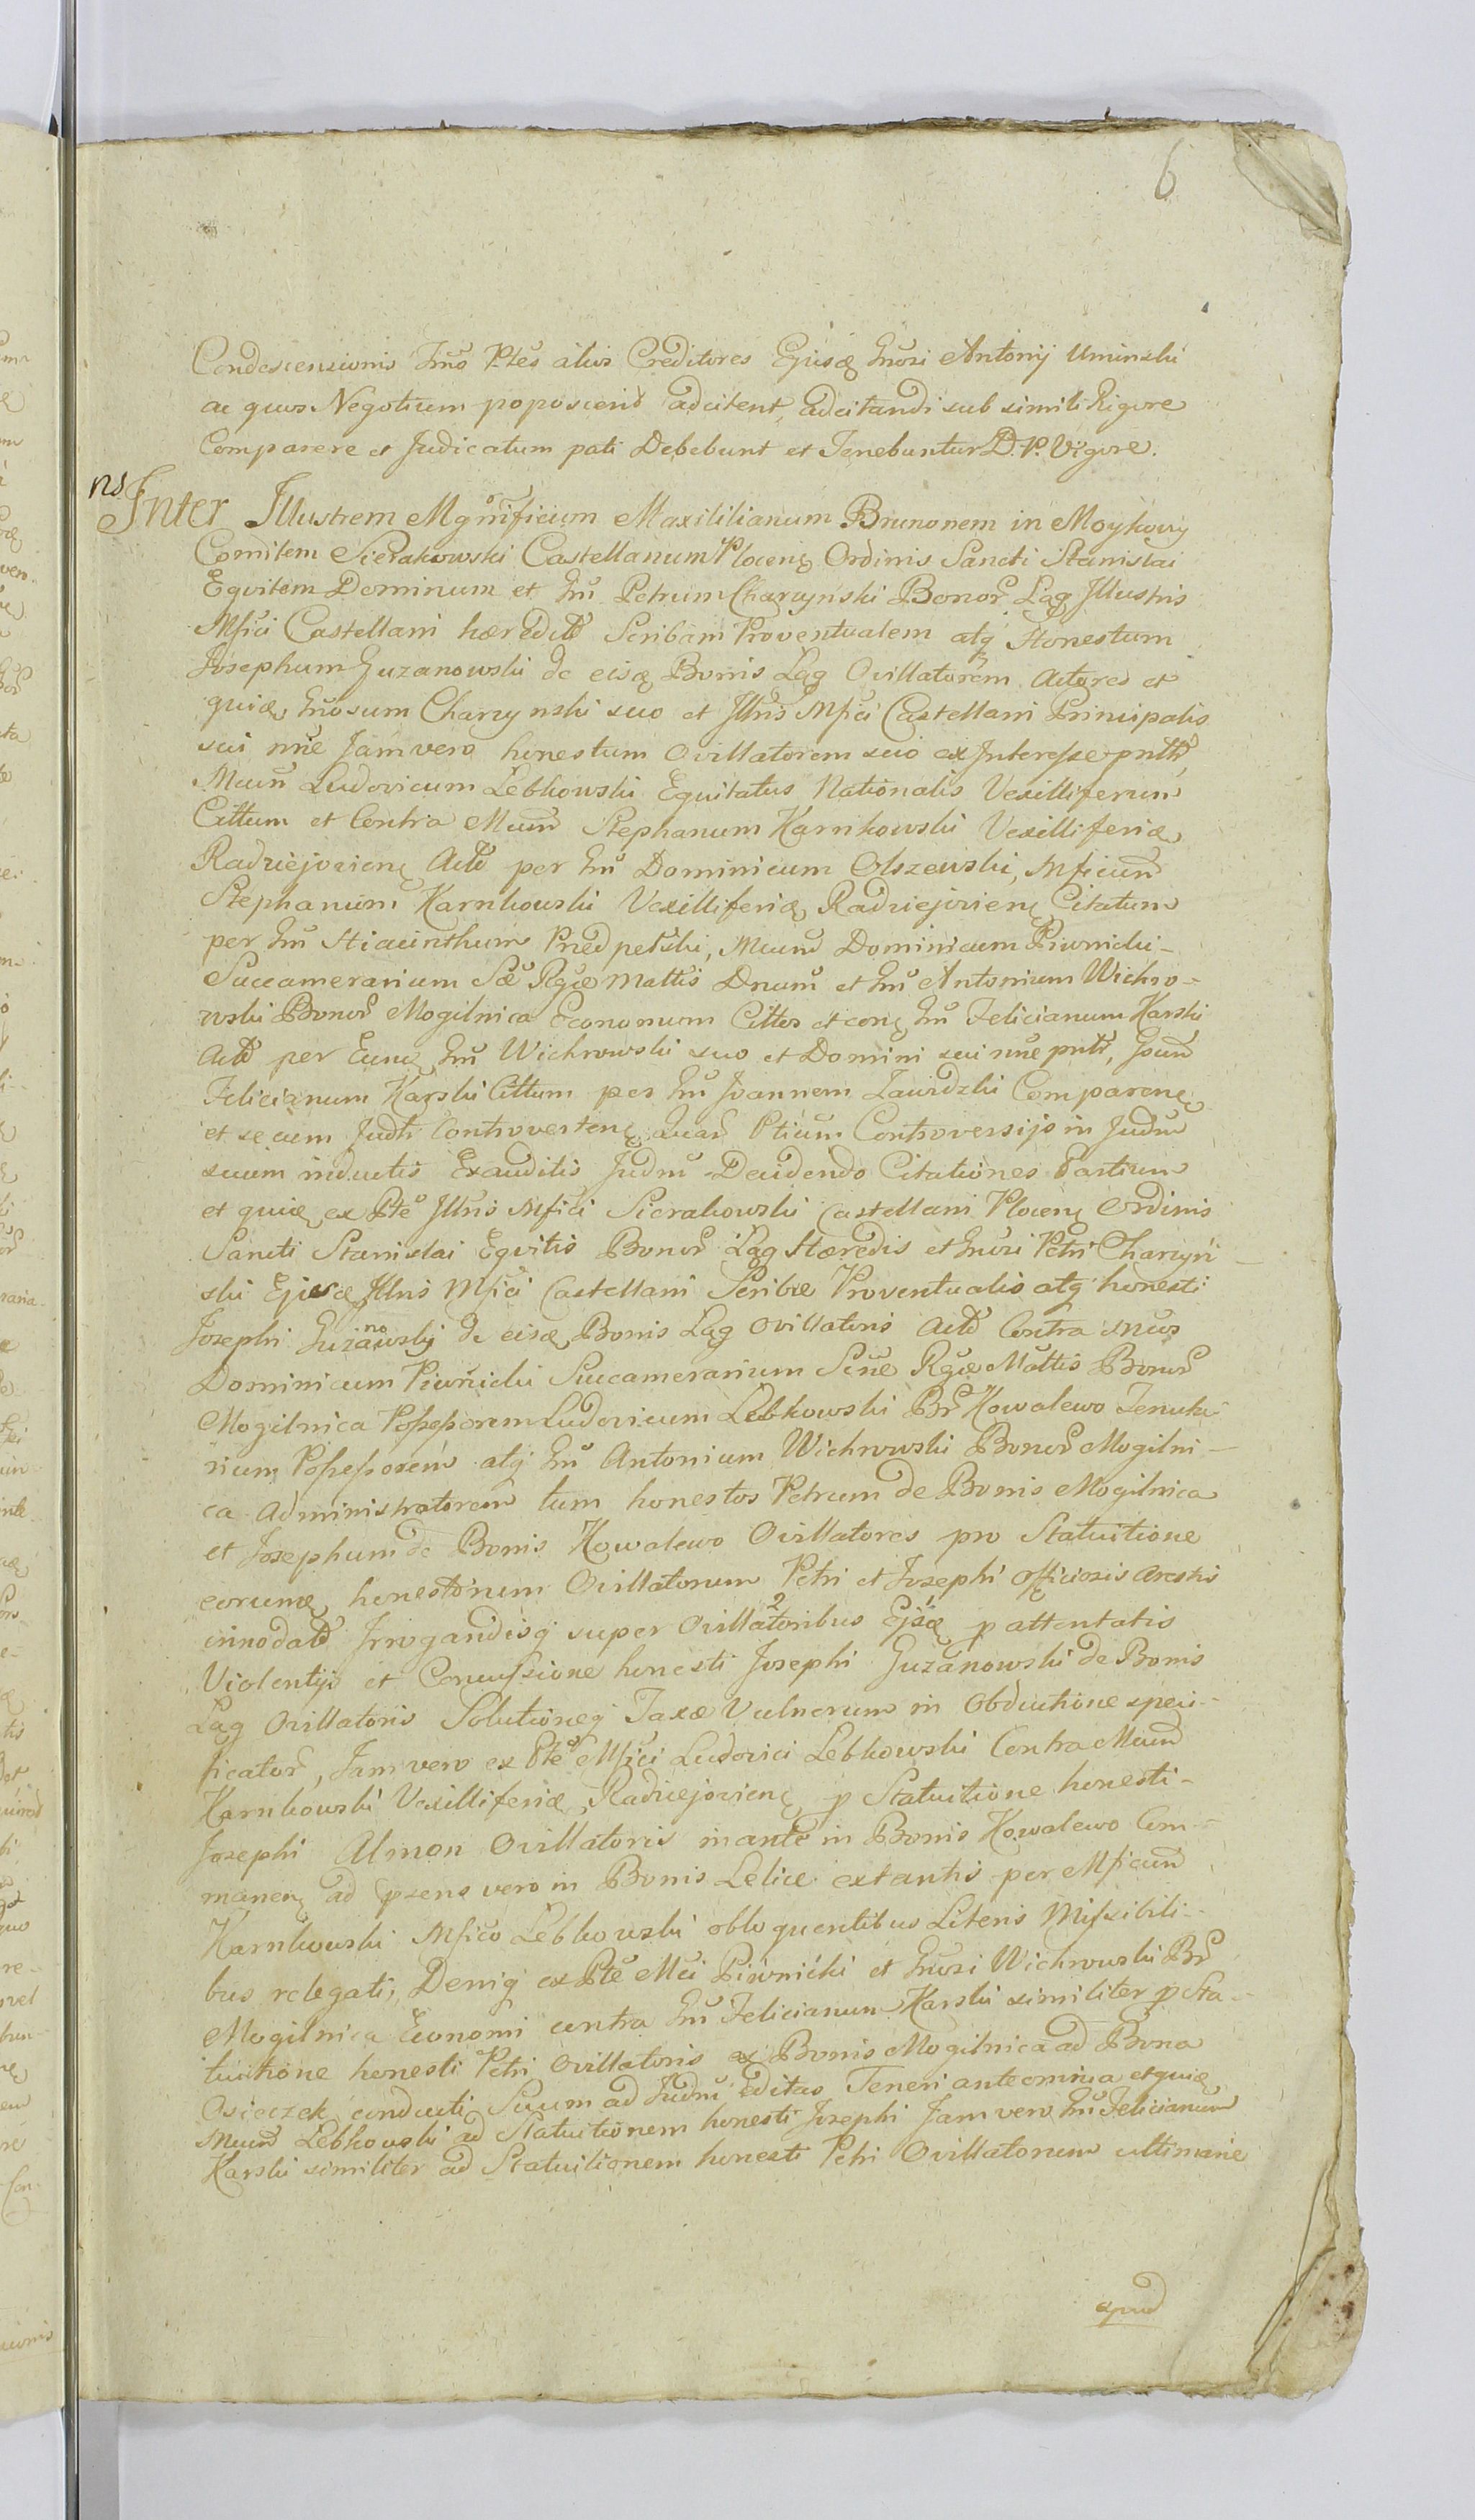 6
Condescensionis Imo Ptes alios Creditores Ejusq Gnosi Antonij Uminski
ac quos Negotium poposcerit adcitent, adcitandi sub simili Rigore
Comparere et Judicatum pati Debebunt et Tenebuntur D. P. Vigore.
ns Inter Illustrem Mgnificum Maxililianum Brunonem in Moykowy
Comitem Sierakowski Castellanum Plocenq Ordinis Sancti Stanislai
Eqvitem Dominum et Gnu Petrum Charzynski Bonor Lag Illustris
Mfici Castellani hæredit Scribam Proventualem atq Honestum
Josephum Guzanowski de eisq Bonis Lag Ovillatorem Actores et
quiq Gnosum Charzynski suo et Illris Mfici Castellani Principalis
sui nne Jam vero honestum Ovillatorem suo ex Interesse pntt,
Mcum Ludovicum Lebkowski Equitatus Nationalis Vexilliferum
Cittum et Contra Mcum Stephanum Karnkowski Vexilliferiq
Radziejovienq Act per Gnu Dominicum Olszewski, Mficum
Stephanum Karnkowski Vexilliferiq Radziejovienq Citatum
per Gnu Hiacinthum Przedpelski, Mcum Dominicum Piwnicki-
Succamerarium Sæ Rgiæ Mattis Dnum et Gnu Antonium Wichro-
wski Bonor Mogilnica Economum Cittos et conq Gnu Felicianum Karski
Act per Eunq Gnu Wichrowski suo et Domini sui nne pntt, Gsum
Felicianum Karski Cittum per Gnu Joannem Zawidzki Comparenq
et se cum Judti Controvertenq quar Ptium Controversijs in Judm
suum inductis Exauditis Judm Decidendo Citationes Partium
et quiq ex Pte Illris Mfici Sierakowski Castellani Plocenq Ordinis
Sancti Stanislai Eqvitis Bonor Lag Hæredis et Gnosi Petri Charzyń
ski Ejusq Illris Mfici Castellani Scribæ Proventualis atq honesti
Josephi Guzanowskij de eisq Bonis Lag Ovillatoris Act Contra Mcos
Dominicum Piwnicki Succamerarium Scæ Rgiæ Mattis Bonor
Mogilnica Possessorem Ludovicum Lebkowski Br Kowalewo Tenuta
rium Possessorem atq Gnu Antonium Wichrowski Bonor Mogilni-
ca Administratorem tum honestos Petrum de Bonis Mogilnica
et Josephum de Bonis Kowalewo Ovillatores pro Statuitione
eorumq honestorum Ovillatorum Petri et Josephi officiosis arestis
innodat Irrogandisq super Ovillatoribus Ejsq p attentatis
Violentijs et Concussione honesti Josephi Guzanowski de Bonis
Lag Ovillatoris Solutioneq Taxæ Vulnerum in Obductione speci-
ficator, Jam vero ex Pte Mfici Ludovici Lebkowski Contra Mcum
Karnkowski Vexilliferiq Radziejovienq p Statuitione honesti-
Josephi Almon Ovillatoris in ante in Bonis Kowalewo Com-
manenq ad psens vero in Bonis Lelice extantis per Mficum
Karnkowski Mfico Lebkowski obloquentibus Literis Missibili-
bus relegati, Deniq ex Pte Mci Piwnicki et Gnosi Wichrowski Br
Mogilnica Economi contra Gnu Felicianum Karski similiter p Sta-
tuitione honesti Petri Ovillatoris ex Bonis Mogilnica ad Bona
Osieczek conducti Suum ad Judm Editas Teneri ante omnia etquiq
Mcum Lebkowski ad Statuitionem honesti Josephi Jam vero Gnu Felicianum
Karski similiter ad Statuitionem honesti Petri Ovillatorum ultimarie
apud